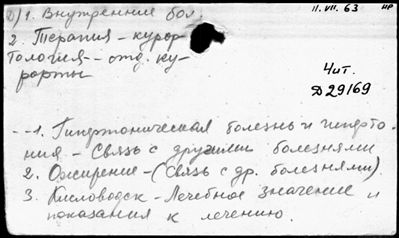 Д) 1. Внутренние бол.
11.VII.63 ир
2. Терапия – курор-
тология – отд. ку-
рорты
Чит.
Д29169
--1. Гипертоническая болезнь и гиперто-
ния – Связь с другими болезнями
2. Ожирение – (Связь с др. болезнями).
3. Кисловодск – Лечебное значение и
показания к лечению.